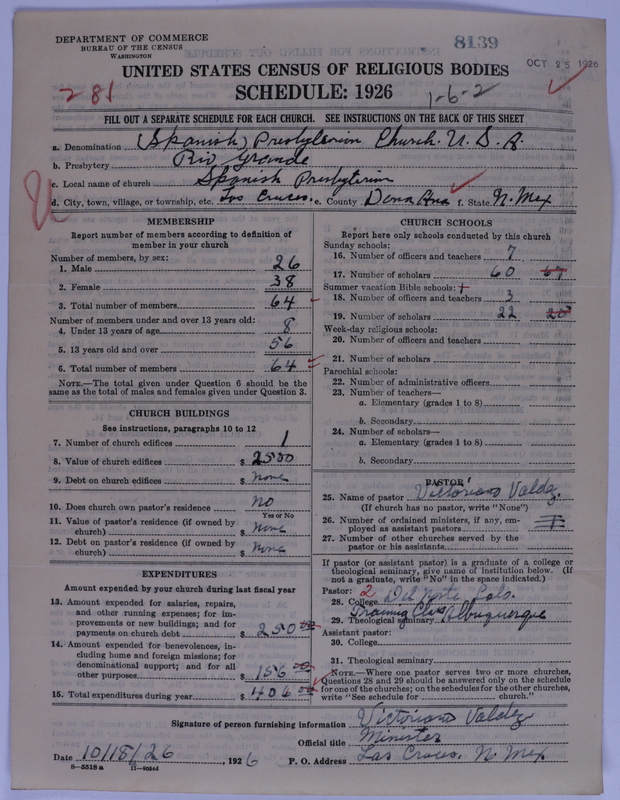 DEPARTMENT OF COMMERCE
BUREAU OF THE CENSUS
WASHINGTON
8139
OCT 25 1926
UNITED STATES CENSUS OF RELIGIOUS BODIES
SCHEDULE: 1926
281
1-6-2
FILL OUT A SEPARATE SCHEDULE FOR EACH CHURCH. SEE INSTRUCTIONS ON THE BACK OF THIS SHEET
a. Denomination (Spanish) Presbyterian Church. U. S. A.
b. Presbytery Rio Grande
c. Local name of church Spanish Presbyterian
d. City, town, village, or township, etc. Las Cruces. e. County Dona Ana f. State N. Mex
MEMBERSHIP
Report number of members according to definition of
member in your church
Number of members, by sex:
1. Male 26
2. Female 38
3. Total number of members 64
Number of members under and over 13 years old:
4. Under 13 years of age 8
5. 13 years old and over 56
6. Total number of members 64
NOTE.—The total given under Question 6 should be the
same as the total of males and females given under Question 3.
CHURCH BUILDINGS
See instructions, paragraphs 10 to 12
7. Number of church edifices 1
8. Value of church edifices $ 2500
9. Debt on church edifices $ None
10. Does church own pastor's residence No
Yes or No
11. Value of pastor's residence (if owned by
church) $ None
12. Debt on pastor's residence (if owned by
church) $ None
EXPENDITURES
Amount expended by your church during last fiscal year
13. Amount expended for salaries, repairs,
and other running expenses; for im-
provements or new buildings; and for
payments on church debt $ 250 00
14. Amount expended for benevolences, in-
cluding home and foreign missions; for
denominational support; and for all
other purposes $ 156 00
15. Total expenditures during year $ 406 00
CHURCH SCHOOLS
Report here only schools conducted by this church
Sunday schools:
16. Number of officers and teachers 7
17. Number of scholars 60 67
Summer vacation Bible schools: +
18. Number of officers and teachers 3
19. Number of scholars 22 20
Week-day religious schools:
20. Number of officers and teachers
21. Number of scholars
Parochial schools:
22. Number of administrative officers
23. Number of teachers—
a. Elementary (grades 1 to 8)
b. Secondary
24. Number of scholars—
a. Elementary (grades 1 to 8)
b. Secondary
PASTOR
25. Name of pastor Victoriano Valdez
(If church has no pastor, write "None")
26. Number of ordained ministers, if any, em-
ployed as assistant pastors
27. Number of other churches served by the
pastor or his assistants
If pastor (or assistant pastor) is a graduate of a college or
theological seminary, give name of institution below. (If
not a graduate, write "No" in the space indicated.)
Pastor: 2
28. College Del Norte Colo.
29. Theological seminary Training Class Albuquerque
Assistant pastor:
30. College
31. Theological seminary
NOTE.—Where one pastor serves two or more churches,
Questions 28 and 29 should be answered only on the schedule
for one of the churches; on the schedules for the other churches,
write "See schedule for church."
Signature of person furnishing information Victoriano Valdez
Official title Minister
Date 10/18/26, 1926 P. O. Address Las Cruces. N. Mex
8—5518 a 11—90544